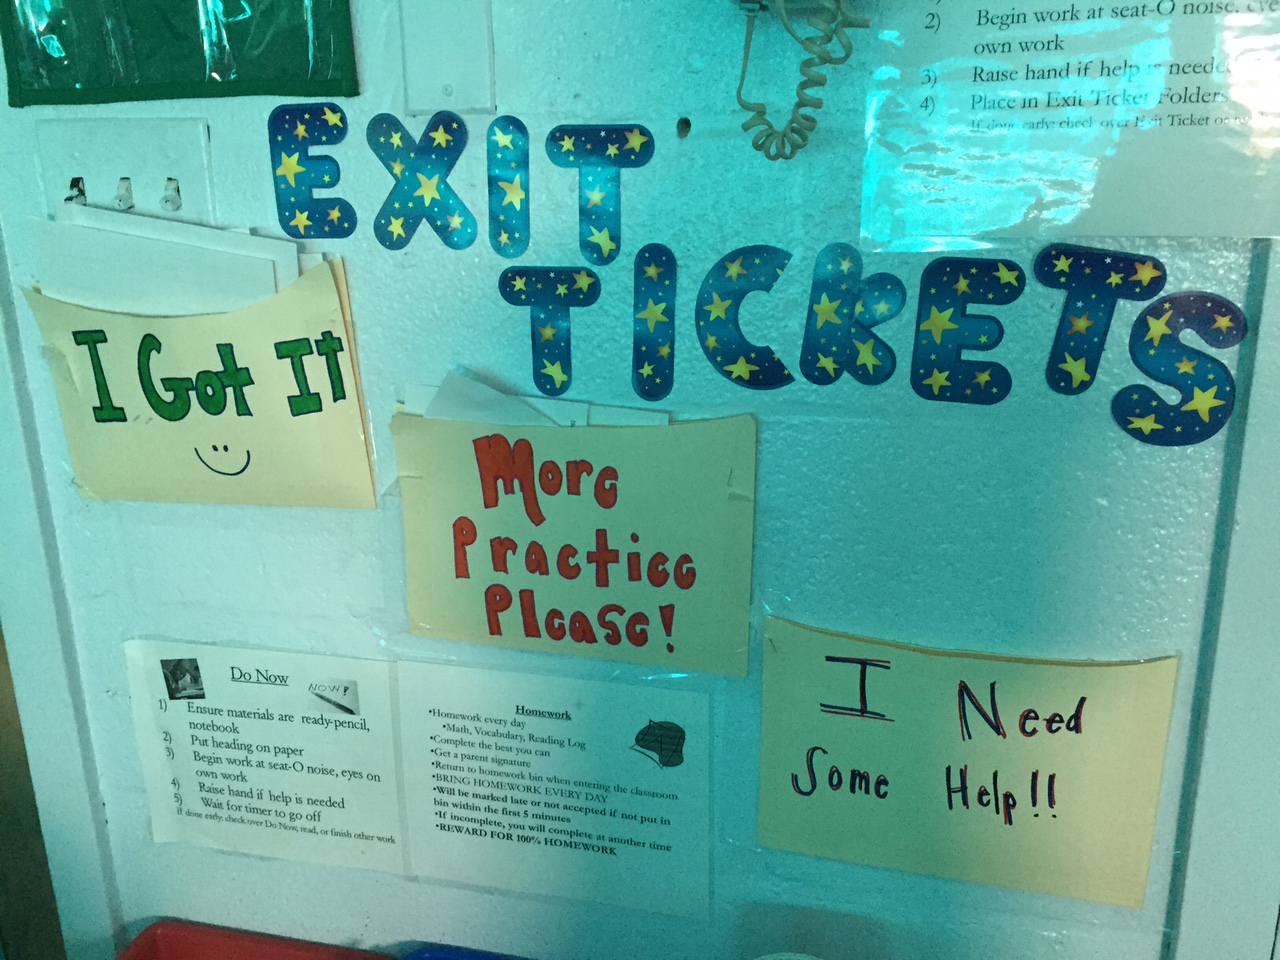 2) Begin work at seat-O noise, eye
own work
3) Raise hand if help is neede
4) Place in Exit Ticket Folders
If done early: check over Exit Ticket or
EXIT
TICkETS
I Got It
More
Practice
Please!
I Need
Some Help!!
Do Now
NOW!
1) Ensure materials are ready-pencil,
notebook
2) Put heading on paper
3) Begin work at seat-O noise, eyes on
own work
4) Raise hand if help is needed
5) Wait for timer to go off
If done early: check over Do Now, read, or finish other work
Homework
•Homework every day
•Math, Vocabulary, Reading Log
•Complete the best you can
•Get a parent signature
•Return to homework bin when entering the classroom
•BRING HOMEWORK EVERY DAY
•Will be marked late or not accepted if not put in
bin within the first 5 minutes
•If incomplete, you will complete at another time
•REWARD FOR 100% HOMEWORK